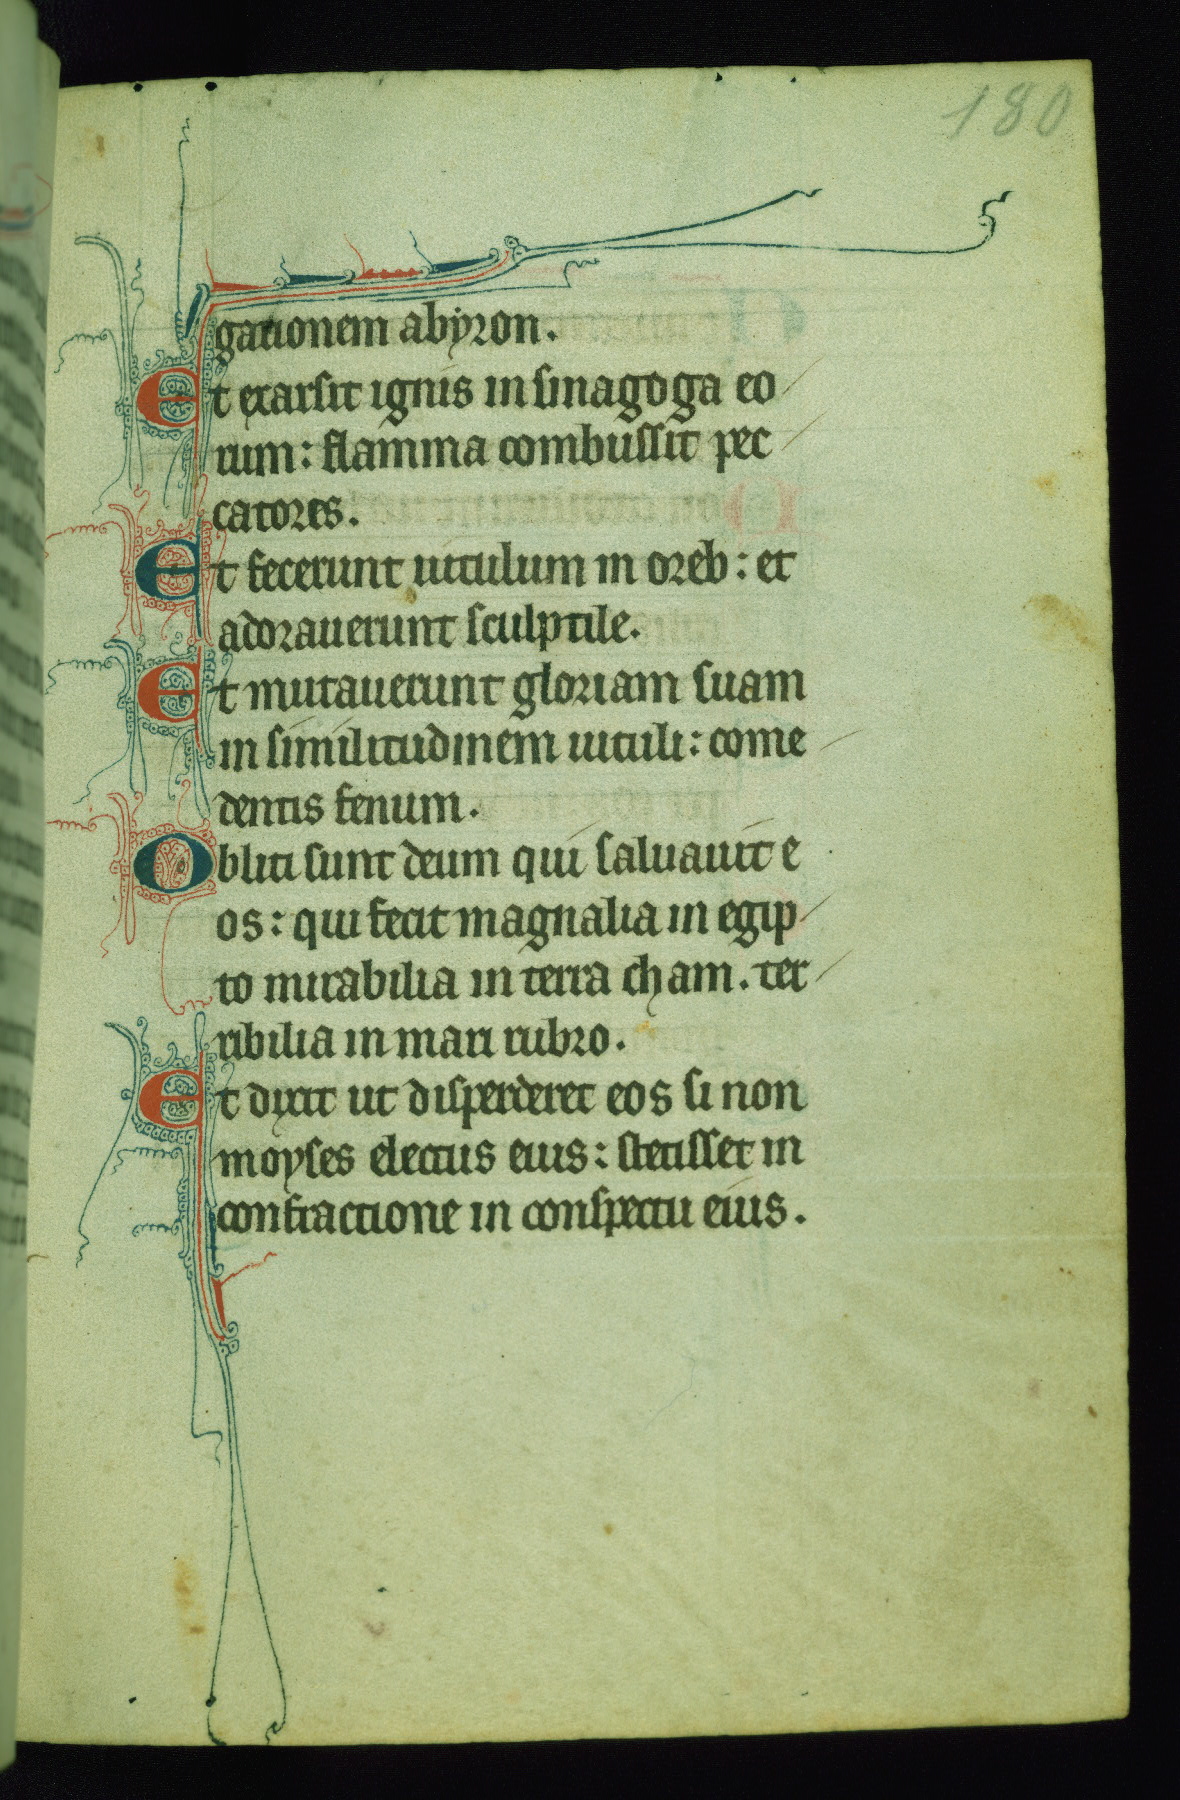 180
gationem abyron.
Et exarsit ignis in sinagoga eo
rum: flamma combussit pec
catores.
Et fecerunt uitulum in oreb: et
adorauerunt sculptile.
Et mutauerunt gloriam suam
in similitudinem uituli: come
dentis fenum.
Obliti sunt deum qui saluauit e
os: qui fecit magnalia in egip
to mirabilia in terra cham. ter
ribilia in mari rubro.
Et dixit ut disperderet eos si non
moyses electus eius: stetisset in
confractione in conspectu eius.